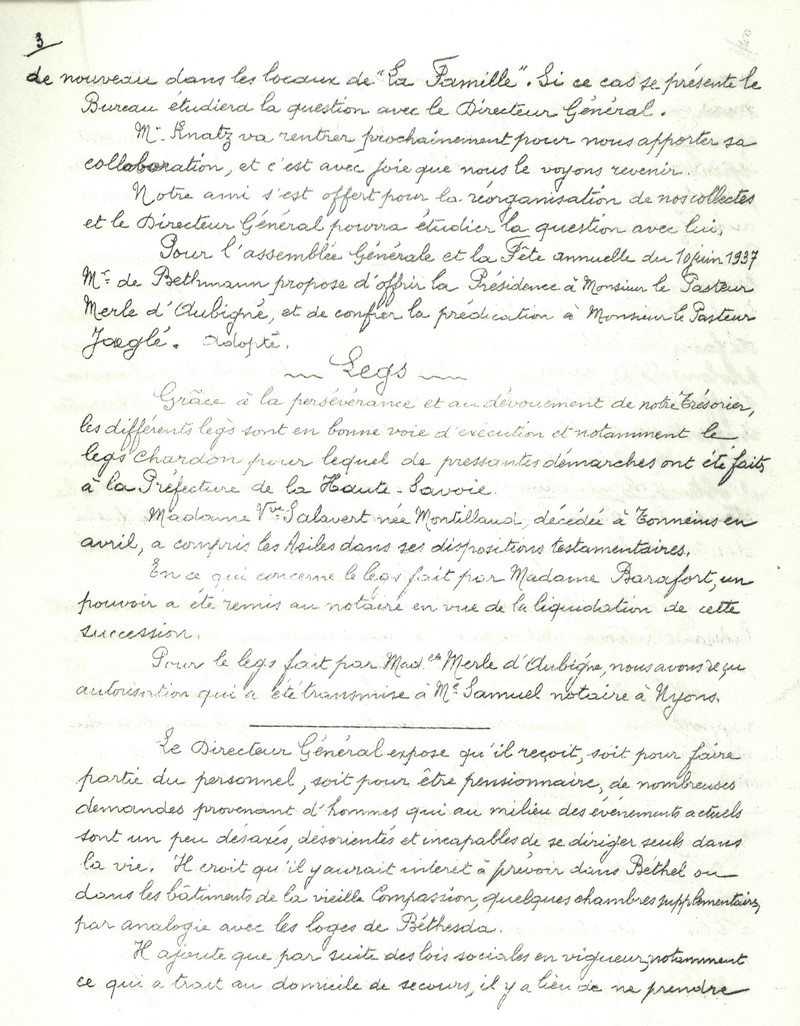 3
de nouveau dans les locaux de "La Famille". Si ce cas se présente le
Bureau étudiera la question avec le Directeur Général.
Mr. Knatz va rentrer prochainement pour nous apporter sa
collaboration, et c'est avec joie que nous le voyons revenir.
Notre ami s'est offert pour la réorganisation de nos collectes
et le Directeur Général pourra étudier la question avec lui.
Pour l'assemblée Générale et la Fête annuelle du 10 juin 1937
Mr. de Bethmann propose d'offrir la Présidence à Monsieur le Pasteur
Merle d'Aubigné, et de confier la prédication à Monsieur le Pasteur
Jaeglé. Adopté.
Legs
Grâce à la persévérance et au dévouement de notre Trésorier,
les différents legs sont en bonne voie d'exécution et notamment le
legs Chardon pour lequel de pressantes démarches ont été faits
à la Préfecture de la Haute-Savoie.
Madame Vve Salavert née Montillaud, décédée à Tonneins en
avril, a compris les Asiles dans ses dispositions testamentaires.
En ce qui concerne le legs fait par Madame Barafort, un
pouvoir a été remis au notaire en vue de la liquidation de cette
succession.
Pour le legs fait par Mad.elle Merle d'Aubigné, nous avons reçu
autorisation qui a été transmise à Me Samuel notaire à Nyons.
Le Directeur Général expose qu'il reçoit, soit pour faire
partie du personnel, soit pour être pensionnaire, de nombreuses
demandes provenant d'hommes qui au milieu des événements actuels
sont un peu désaxés, désorientés et incapables de se diriger seuls dans
la vie. Il croit qu'il y aurait intérêt à prévoir dans Béthel ou
dans les bâtiments de la vieille Compassion, quelques chambres supplémentaires,
par analogie avec les loges de Béthesda.
Il ajoute que par suite des lois sociales en vigueur, notamment
ce qui a trait au domicile de secours, il y a lieu de ne prendre